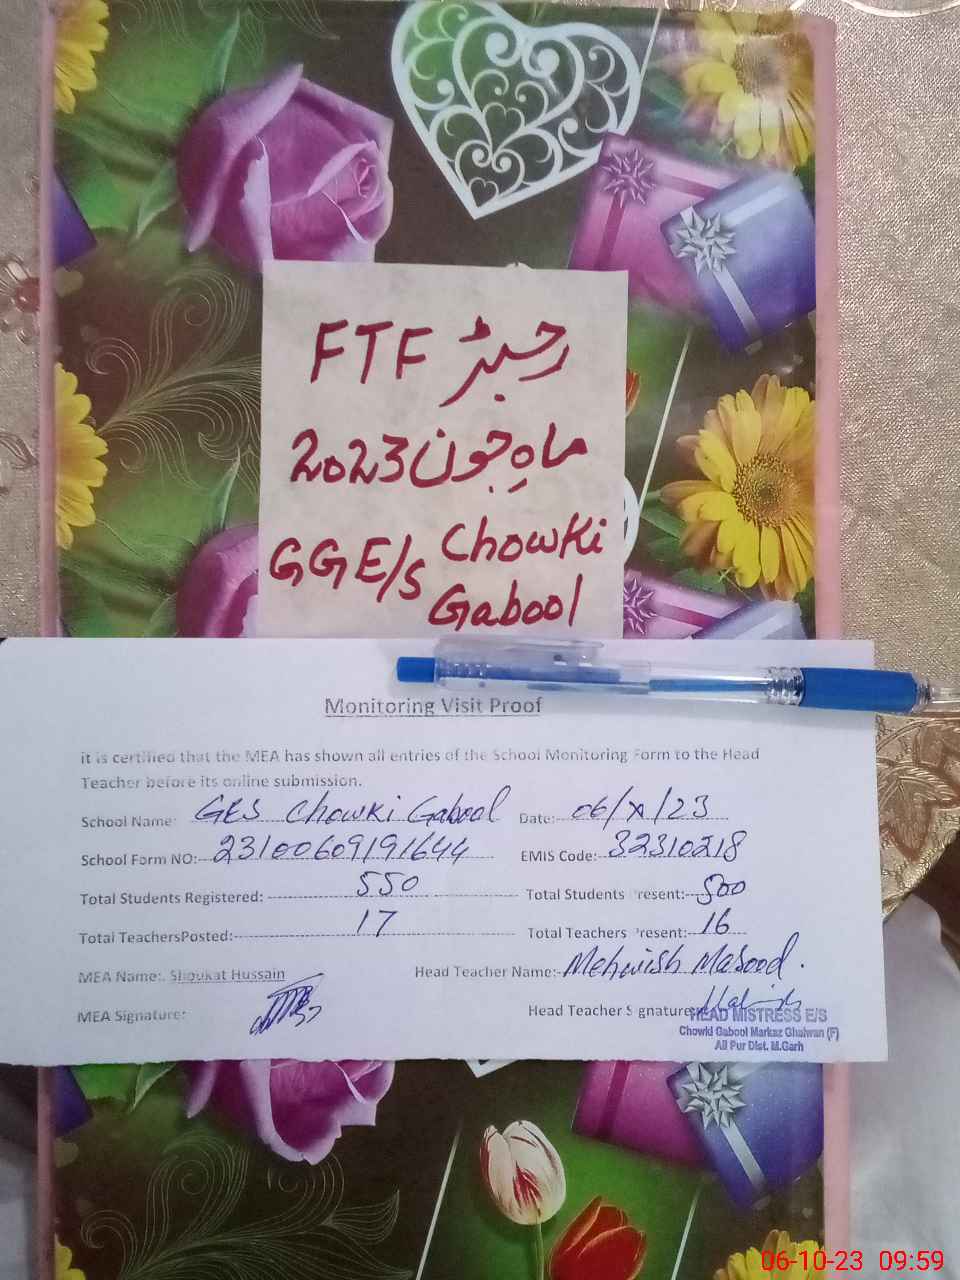 FTF رجسٹر
ماہِ جون 2023
GGE/S Chowki
Gabool
Monitoring Visit Proof
it is certified that the MEA has shown all entries of the School Monitoring Form to the Head
Teacher before its online submission.
School Name: GES Chowki Gabool Date: 06/X/23
School Form NO: 23100609191644 EMIS Code: 32310218
Total Students Registered: 550 Total Students Present: 500
Total TeachersPosted: 17 Total Teachers Present: 16
MEA Name: Shoukat Hussain Head Teacher Name: Mehwish Masood.
MEA Signature: Head Teacher Signature:
HEAD MISTRESS E/S
Chowki Gabool Markaz Ghalwan (F)
Ali Pur Dist. M.Garh
06-10-23 09:59